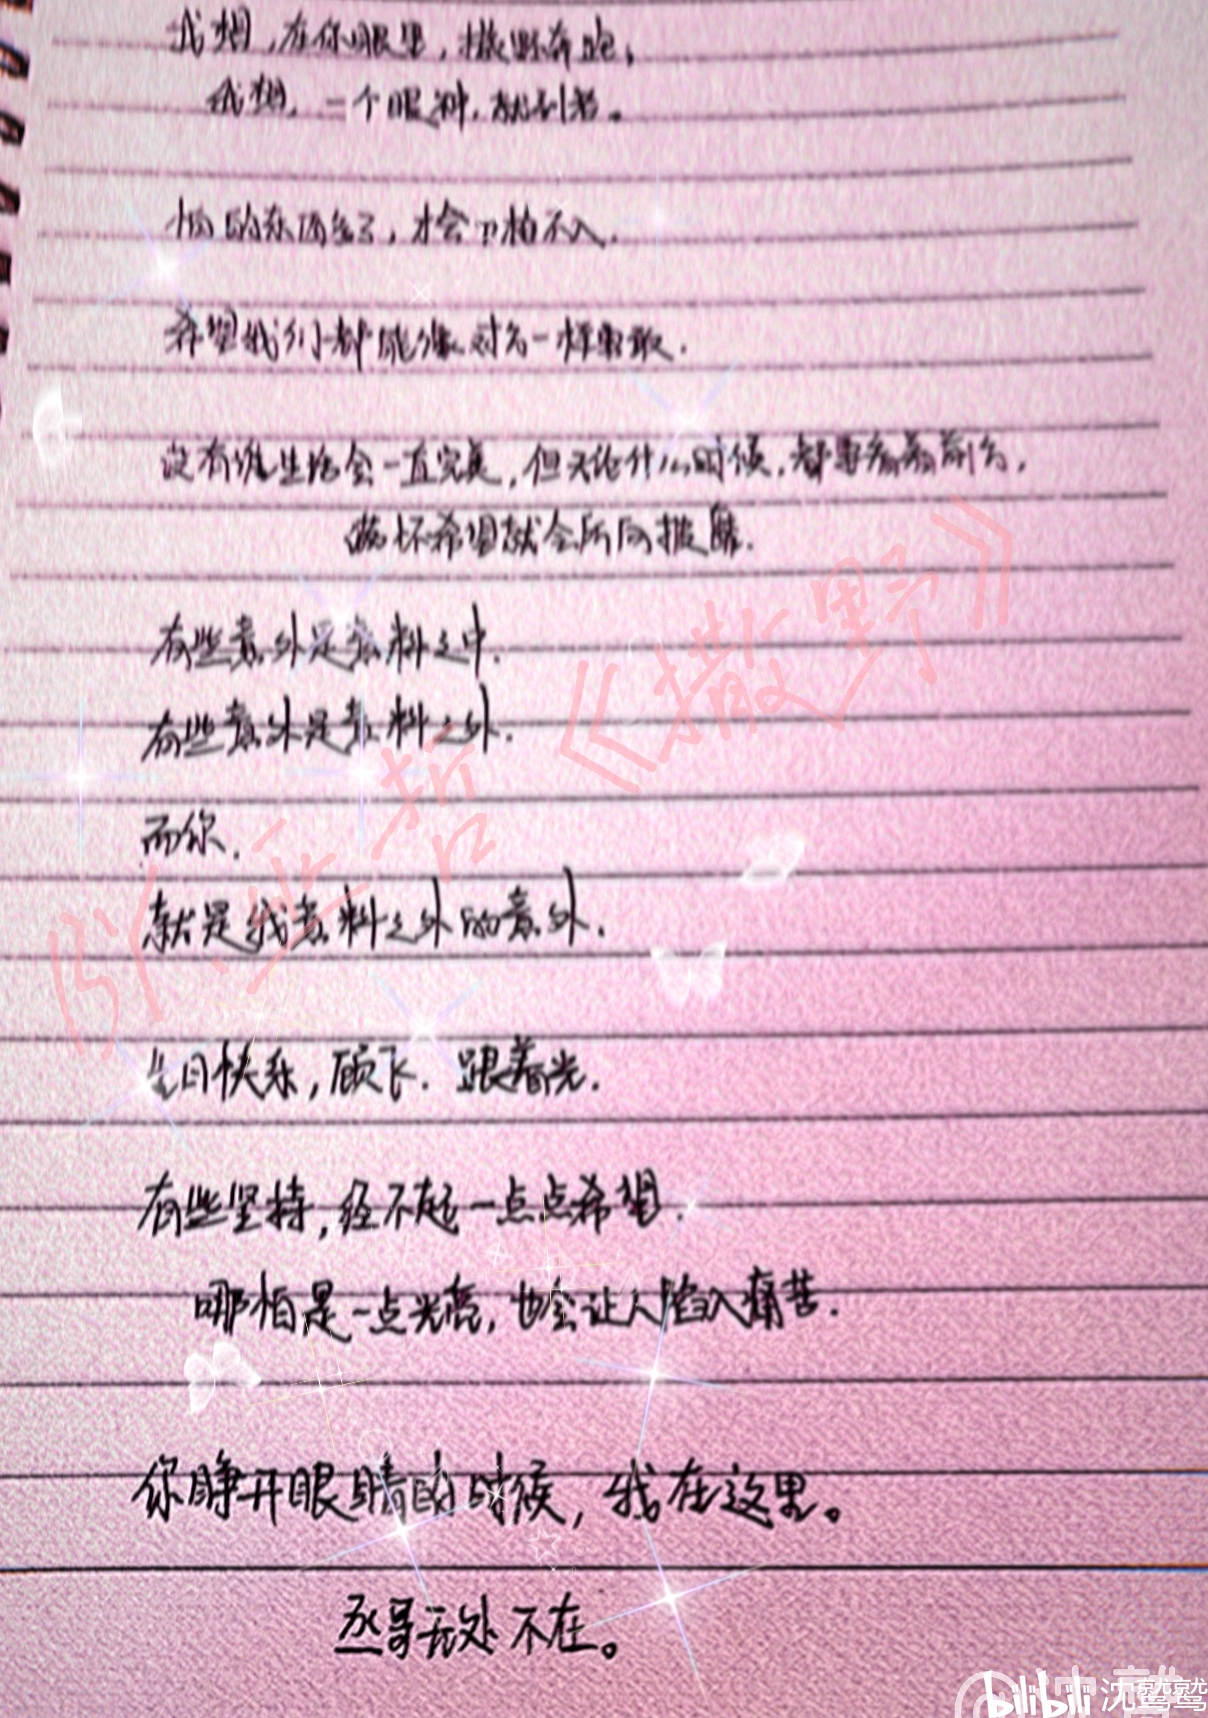 我想,在你眼里,撒野奔跑,
我想,一个眼神,就到老。
怕的东西多了,才会刀枪不入.
希望我们都能像对方一样勇敢.
没有谁生活会一直完美,但无论什么时候,都要看着前方,
满怀希望就会所向披靡.
有些意外是意料之中.
有些意外是意料之外.
而你.
就是我意料之外的意外.
生日快乐,顾飞. 跟着光.
有些坚持,经不起一点点希望.
哪怕是一点光亮,也会让人陷入痛苦.
你睁开眼睛的时候,我在这里。
丞哥无处不在。
《撒野》
bilibili 沈鹫鹫